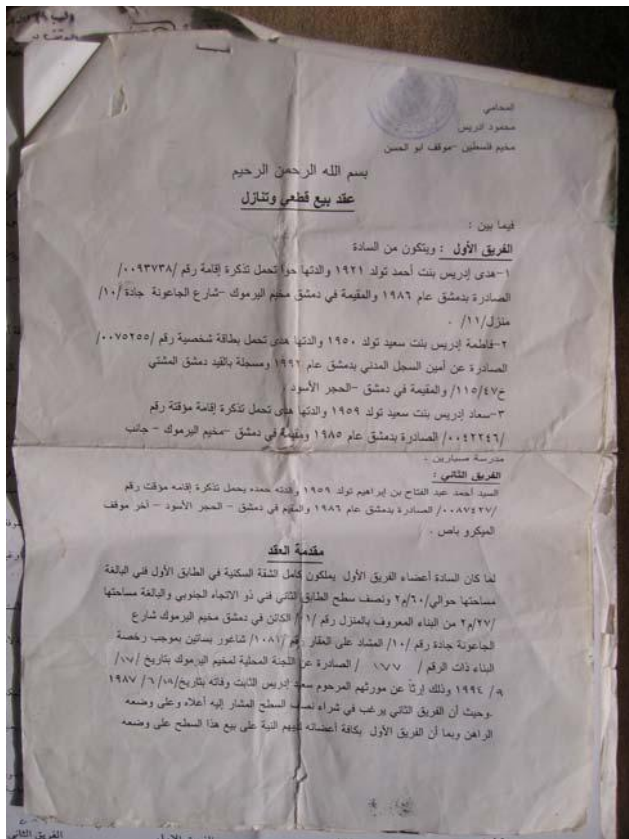 المحامي
محمود ادريس
مخيم فلسطين -موقف ابو الحسن
بسم الله الرحمن الرحيم
عقد بيع قطعي وتنازل
فيما بين :
الفريق الأول : ويتكون من السادة
١-هدى إدريس بنت أحمد تولد ١٩٢١ والدتها حوا تحمل تذكرة إقامة رقم /٠٠٩٣٧٣٨/
الصادرة بدمشق عام ١٩٨٦ والمقيمة في دمشق مخيم اليرموك -شارع الجاعونة جادة /١٠/
منزل/١١/ .
٢-فاطمة إدريس بنت سعيد تولد ١٩٥٠ والدتها هدى تحمل بطاقة شخصية رقم /٠٠٧٥٢٥٥/
الصادرة عن أمين السجل المدني بدمشق عام ١٩٩٢ ومسجلة بالقيد دمشق المشتي
خ١١٥/٤٧/ والمقيمة في دمشق -الحجر الأسود
٣-سعاد إدريس بنت سعيد تولد ١٩٥٩ والدتها هدى تحمل تذكرة إقامة مؤقتة رقم
/٠٠٤٢٢٤٦/ الصادرة بدمشق عام ١٩٨٥ ومقيمة في دمشق -مخيم اليرموك - جانب
مدرسة صبارين .
الفريق الثاني :
السيد أحمد عبد الفتاح بن إبراهيم تولد ١٩٥٩ والدته حمده يحمل تذكرة إقامه مؤقت رقم
/٠٠٨٧٤٢٧/ الصادرة بدمشق عام ١٩٨٦ والمقيم في دمشق - الحجر الأسود - آخر موقف
الميكرو باص .
مقدمة العقد
لما كان السادة أعضاء الفريق الأول يملكون كامل الشقة السكنية في الطابق الأول فني البالغة
مساحتها حوالي/٦٠/م٢ ونصف سطح الطابق الثاني فني ذو الاتجاه الجنوبي والبالغة مساحتها
/٢٧/م٢ من البناء المعروف بالمنزل رقم /١١/ الكائن في دمشق مخيم اليرموك شارع
الجاعونة جادة رقم /١٠/ المشاد على العقار رقم /١٠٨١/ شاغور بساتين بموجب رخصة
البناء ذات الرقم / ١٧٧ / الصادرة عن اللجنة المحلية لمخيم اليرموك بتاريخ /١٧/
٩/ ١٩٩٤ وذلك إرثاً عن مورثهم المرحوم سعيد إدريس الثابت وفاته بتاريخ/١٩/ ٦/ ١٩٨٧
.وحيث أن الفريق الثاني يرغب في شراء نصف السطح المشار إليه أعلاه وعلى وضعه
الراهن وبما أن الفريق الأول بكافة أعضائه لديهم النية على بيع هذا السطح على وضعه
الفريق الثاني